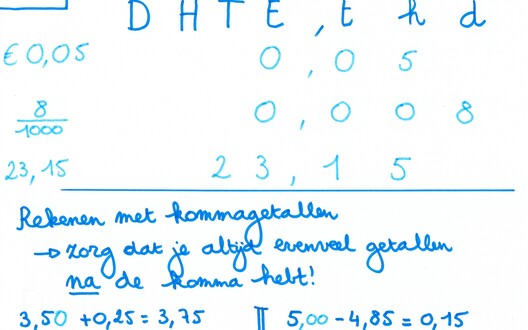 D H T E , t h d
€ 0,05 0 , 0 5
8/1000 0 , 0 0 8
23,15 2 3 , 1 5
Rekenen met kommagetallen
→ zorg dat je altijd evenveel getallen
na de komma hebt!
3,50 + 0,25 = 3,75 || 5,00 - 4,85 = 0,15